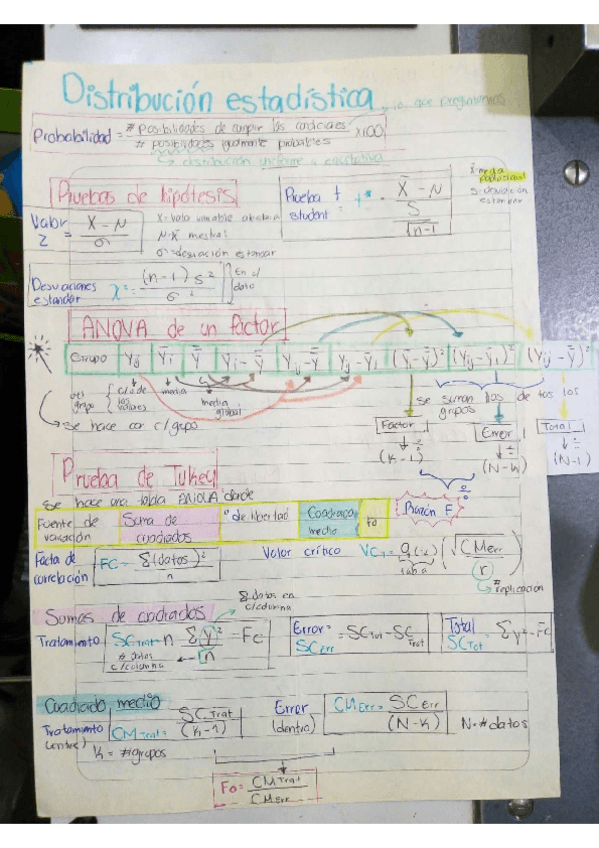 Distribución estadística, lo que preguntamos
Probabilidad = # posibilidades de cumplir las condiciones / # posibilidades igualmente probables x100
distribución uniforme y equitativa
Pruebas de hipótesis
Prueba t student = t* = X̄ - N / S / √n-1
X̄ media poblacional
S = desviación estandar
Valor Z = X - N / σ
X = valo variable aleatoria
σ = desviación estandar
Desviaciones estandar χ² = (n-1) s² / σ²
En el dato
ANOVA de un factor
Grupo Yij Ȳi Ȳ Ȳi - Ȳ Yij - Ȳ Yij - Ȳi (Ȳi - Ȳ)² (Yij - Ȳi)² (Yij - Ȳ)²
del grupo { c/u de los valores
media
media global
se suman los de tos los grupos
se hace con c/grupo
Factor 1 Error 1 Total 1
÷ ÷ ÷
(K-1) (N-K) (N-1)
Prueba de Tukey
Se hace una tabla ANOVA donde
Razón F
Fuente de variación Suma de cuadrados ° de libertad Cuadrado medio Fo
Facta de correlación FC = Σ(datos)² / n
Valor crítico VC = q(α) (√CMerr / r)
tabla
# replicación
Sumas de cuadrados
Σ datos en c/columna
Tratamiento SC Trat = n Σy² / n - Fc
# datos c/columna
Error = SCerr = SCTot - SC Trat
Total SCTot = Σy² - Fc
Cuadrado medio
Tratamiento (entre) CM Trat = SC Trat / (k-1)
Error (dentro) CM Err = SC Err / (N-K)
N = # datos
K = # grupos
Fo = CM Trat / CM Err